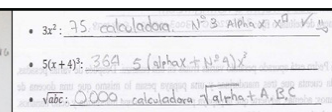 • 3x²: 75. calculadora. Nº3 Alpha x x□ ✓
• 5(x+4)³: 364 5 (alphax + Nº4) x³
• √abc: 0.000 calculadora √alpha + A, B, C